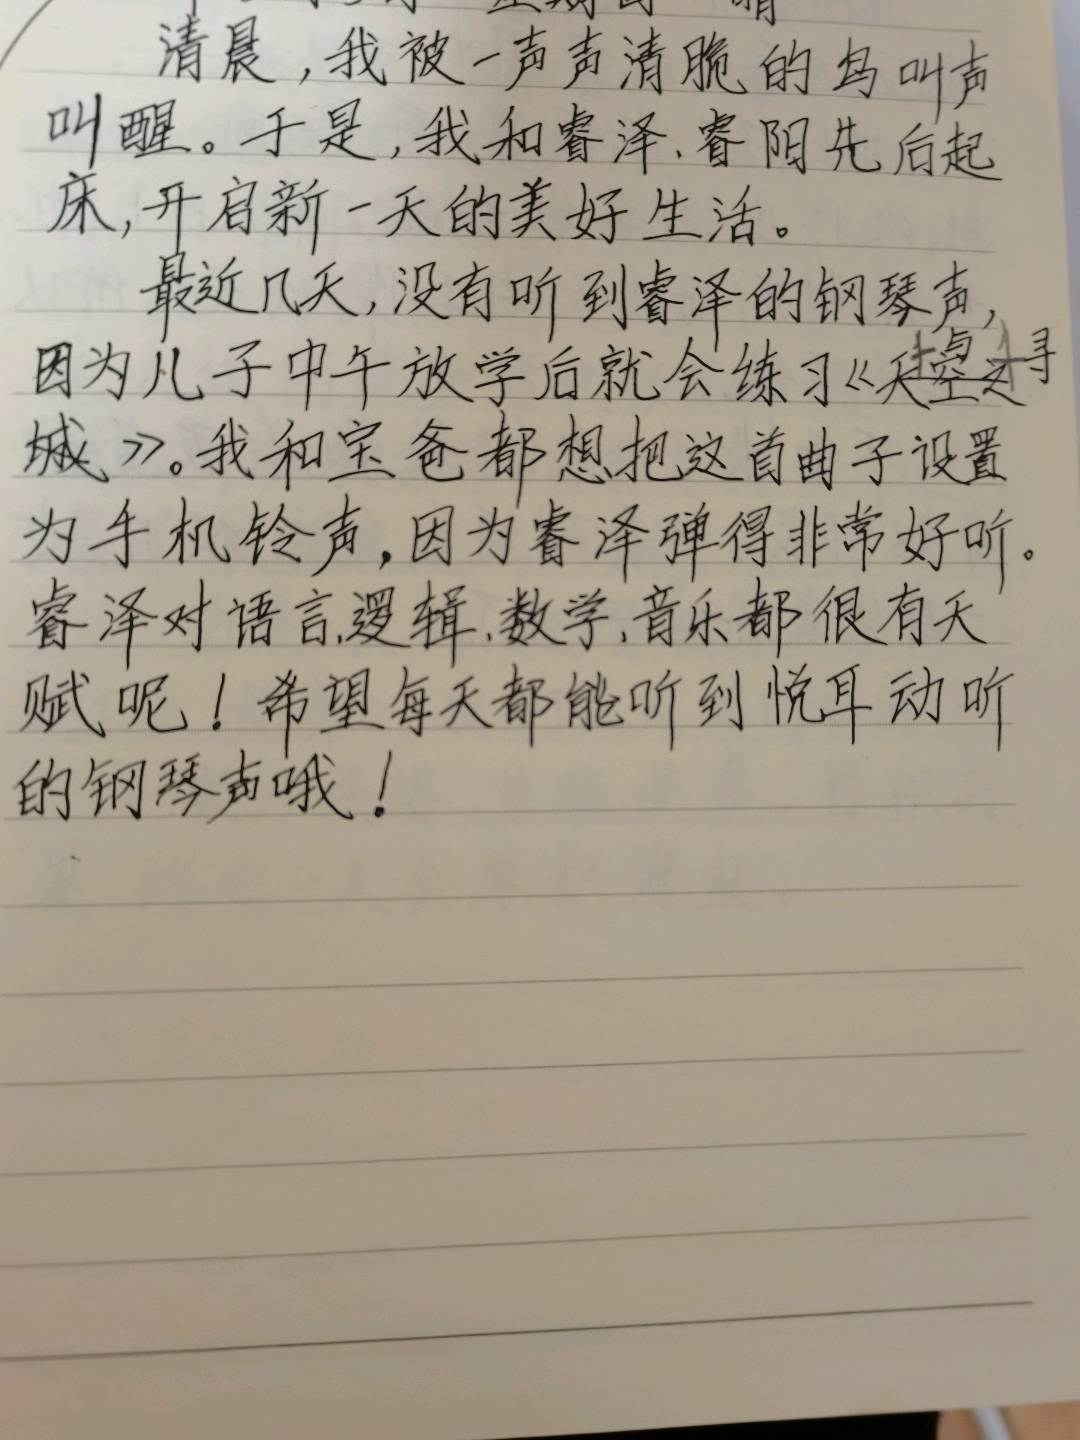 清晨,我被一声声清脆的鸟叫声
叫醒。于是,我和睿泽、睿阳先后起
床,开启新一天的美好生活。
最近几天,没有听到睿泽的钢琴声,
因为儿子中午放学后就会练习《天空之
城》。我和宝爸都想把这首曲子设置
为手机铃声,因为睿泽弹得非常好听。
睿泽对语言、逻辑、数学、音乐都很有天
赋呢!希望每天都能听到悦耳动听
的钢琴声哦!